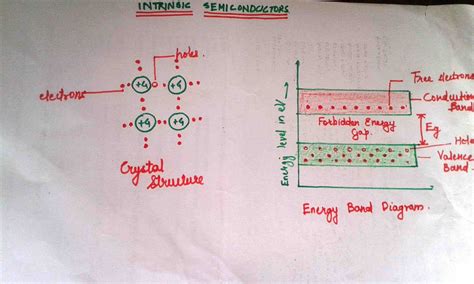 INTRINSIC SEMICONDUCTORS
hole
electrons
+4 +4
+4 +4
Crystal
Structure
Energy level in eV
Free electrons
Conduction
Band
Forbidden Energy
Gap.
Eg
Hole
Valence
Band.
Energy Band Diagram.